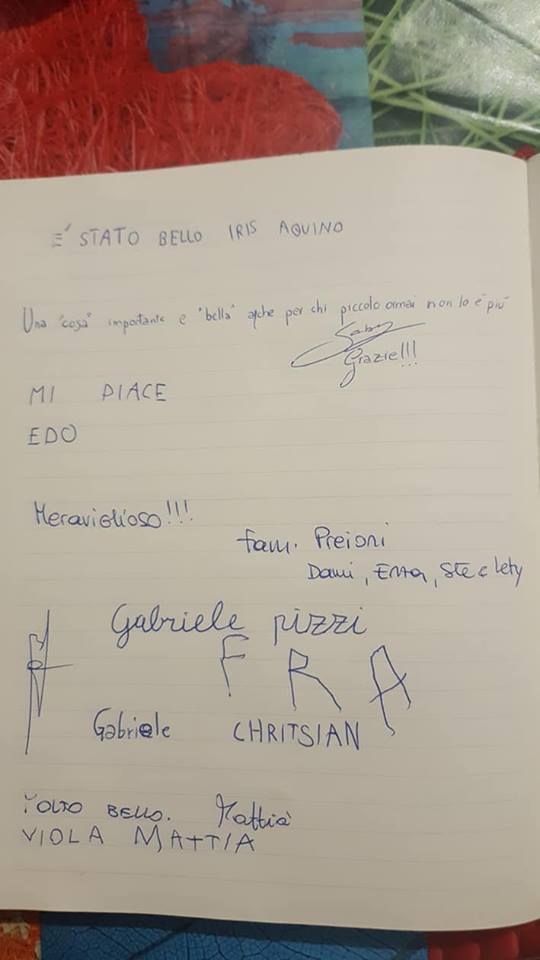 E' STATO BELLO IRIS AQUINO
Una "cosa" importante e "bella" anche per chi piccolo ormai non lo è più
Grazie!!!
MI PIACE
EDO
Meraviglioso!!!
fam. Preioni
Dami, Emma, Ste e lety
Gabriele pizzi
FRA
Gabriele CHRITSIAN
MOLTO BELLO. Mattia
VIOLA MATTIA